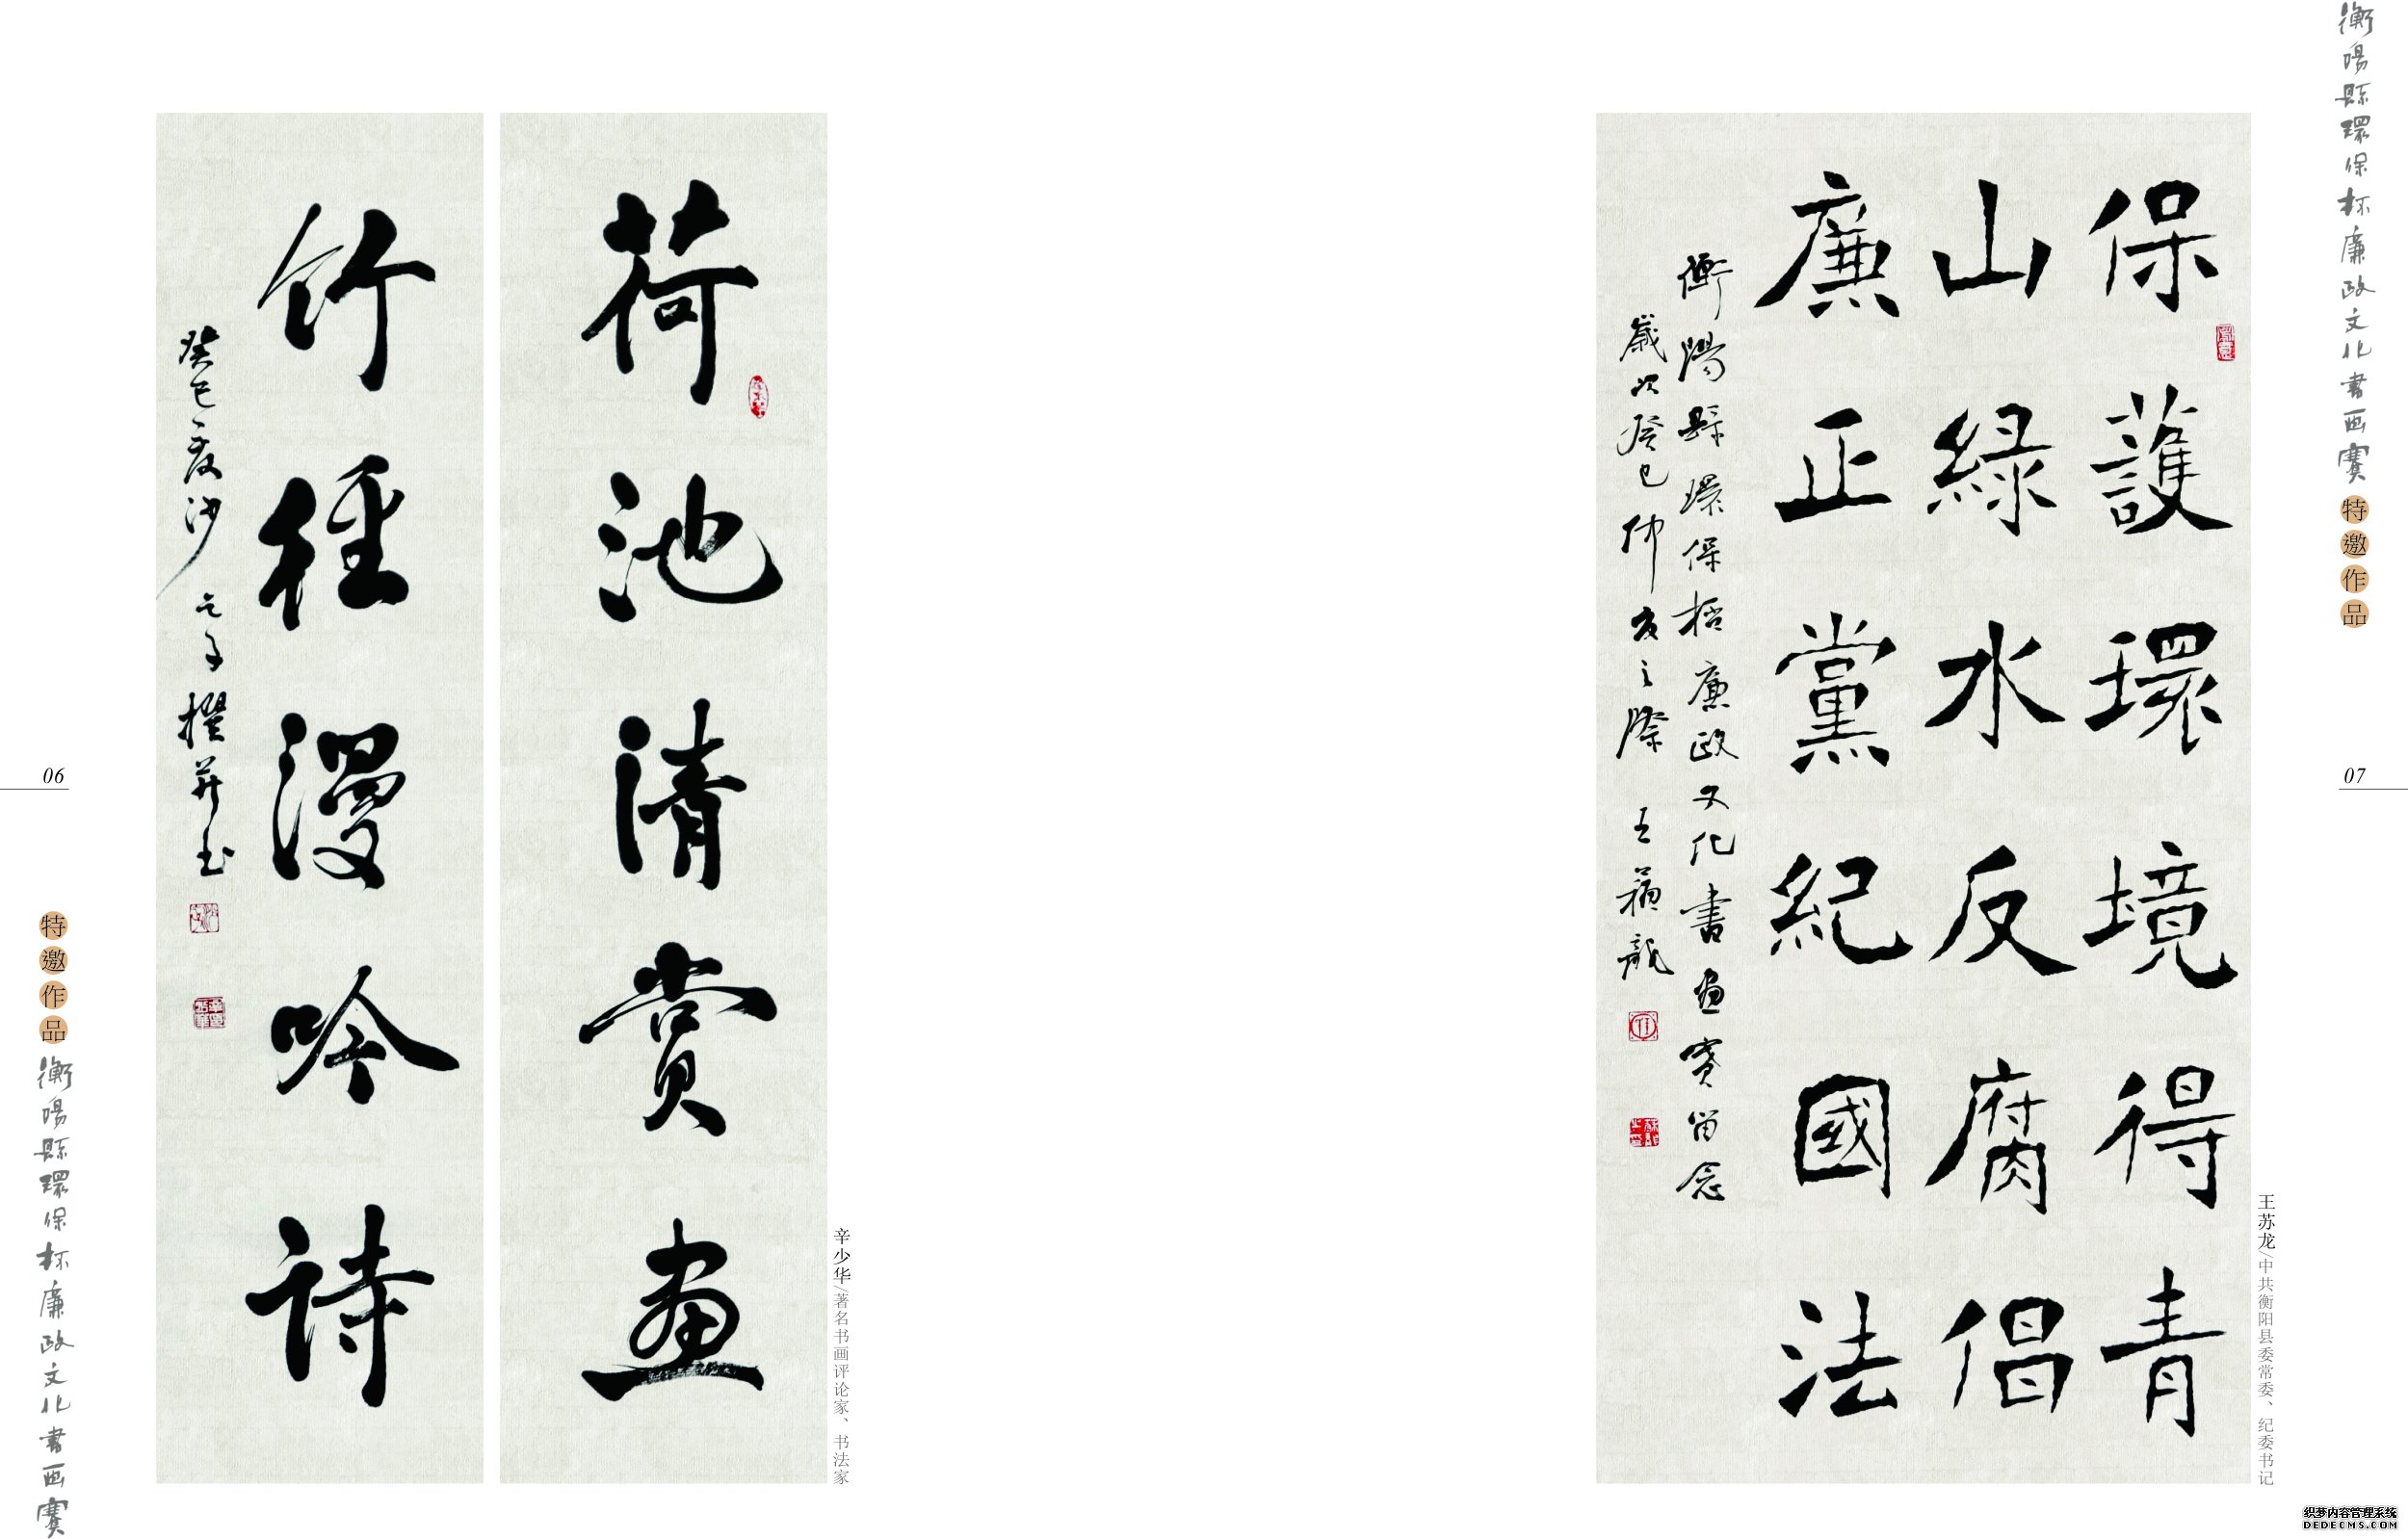 衡陽縣環保杯廉政文化書画賽
特邀作品
07
保護環境得青
山緑水反腐倡
廉正黨紀國法
衡陽縣環保杯廉政文化書畫賽留念
歲次癸巳仲夏之際 王蘇龍
王苏龙/中共衡阳县委常委、纪委书记
荷池清赏画
竹径漫吟诗
癸巳夏沙
撰并书
辛少华/著名书画评论家、书法家
06
特邀作品
衡陽縣環保杯廉政文化書画賽
织梦内容管理系统
DEDECMS.COM